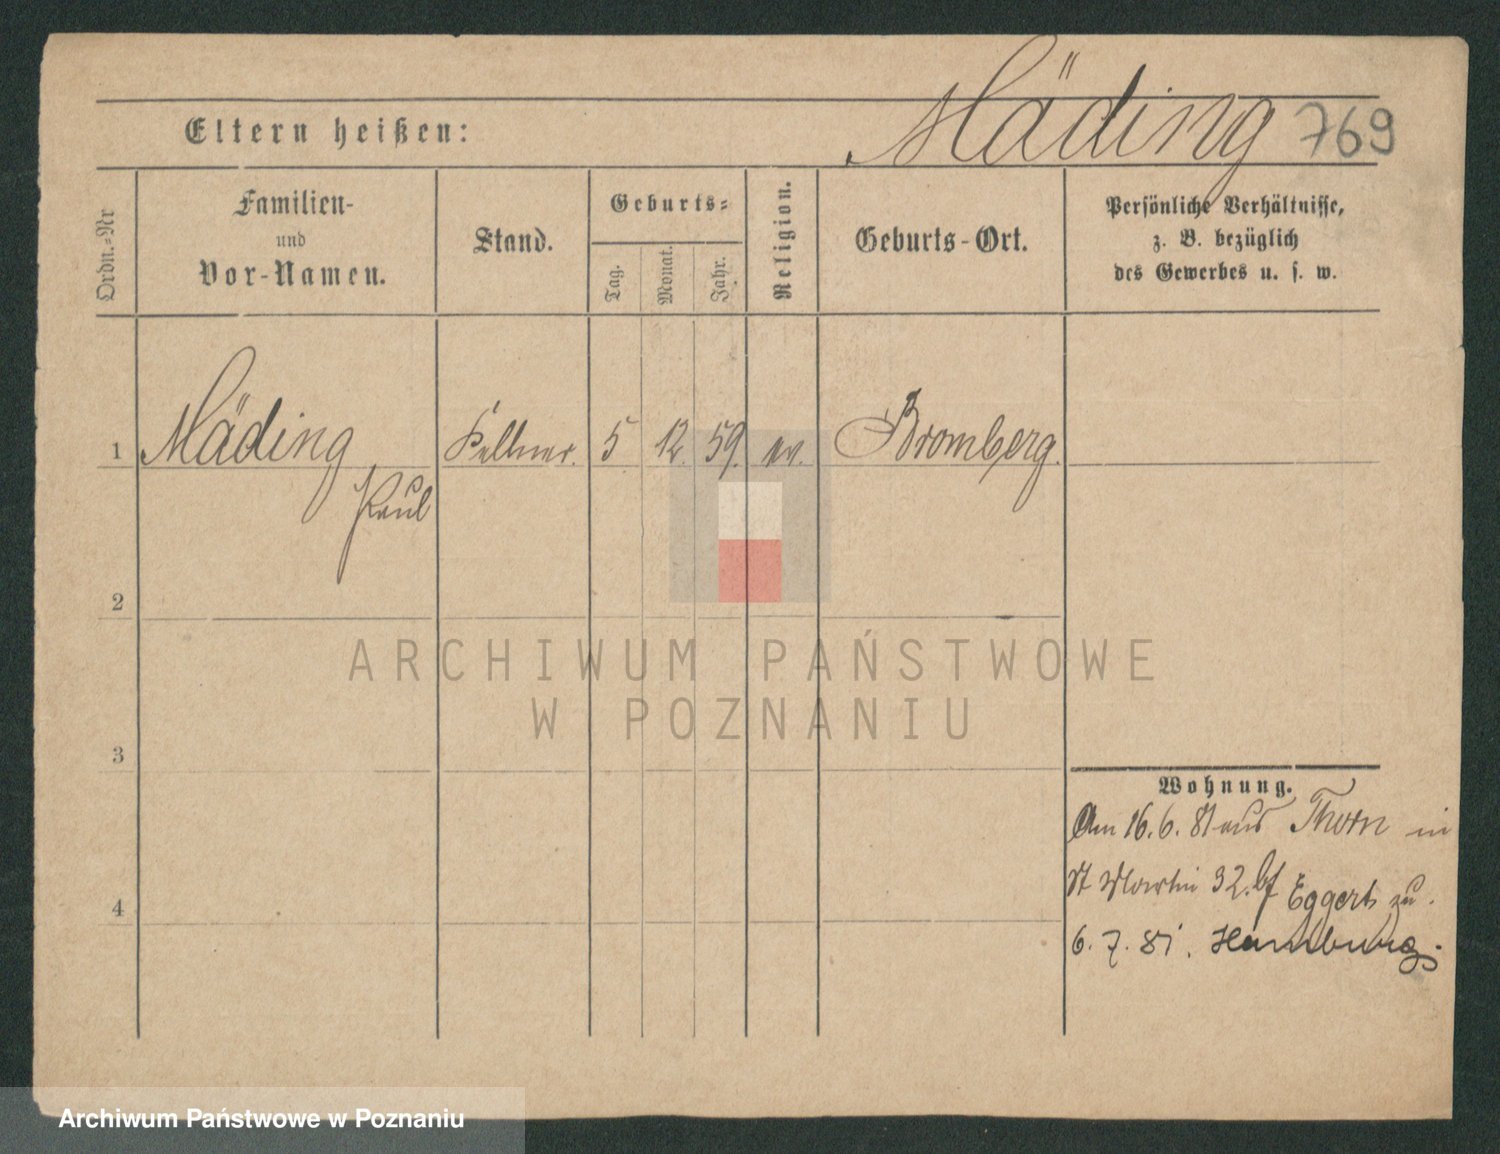 Mäding 769
Eltern heißen:
Ordn.-Nr
Familien-
und
Vor-Namen.
Stand.
Geburts-
Tag.
Monat.
Jahr.
Religion.
Geburts-Ort.
Persönliche Verhältnisse,
z. B. bezüglich
des Gewerbes u. s. w.
1 Mäding Kellner. 5 12. 59. ev. Bromberg.
Paul
2
ARCHIWUM PAŃSTWOWE
W POZNANIU
3
Wohnung.
Am 16. 6. 81 aus Thorn in
St Martin 32. bf Eggert zu.
4
6. 7. 81. Hamburg.
Archiwum Państwowe w Poznaniu